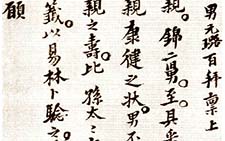 男元璐百拜稟上
親。錦二舅。至。具
親康健之狀。男不
親之壽。比孫太
義。以易林卜驗之
願